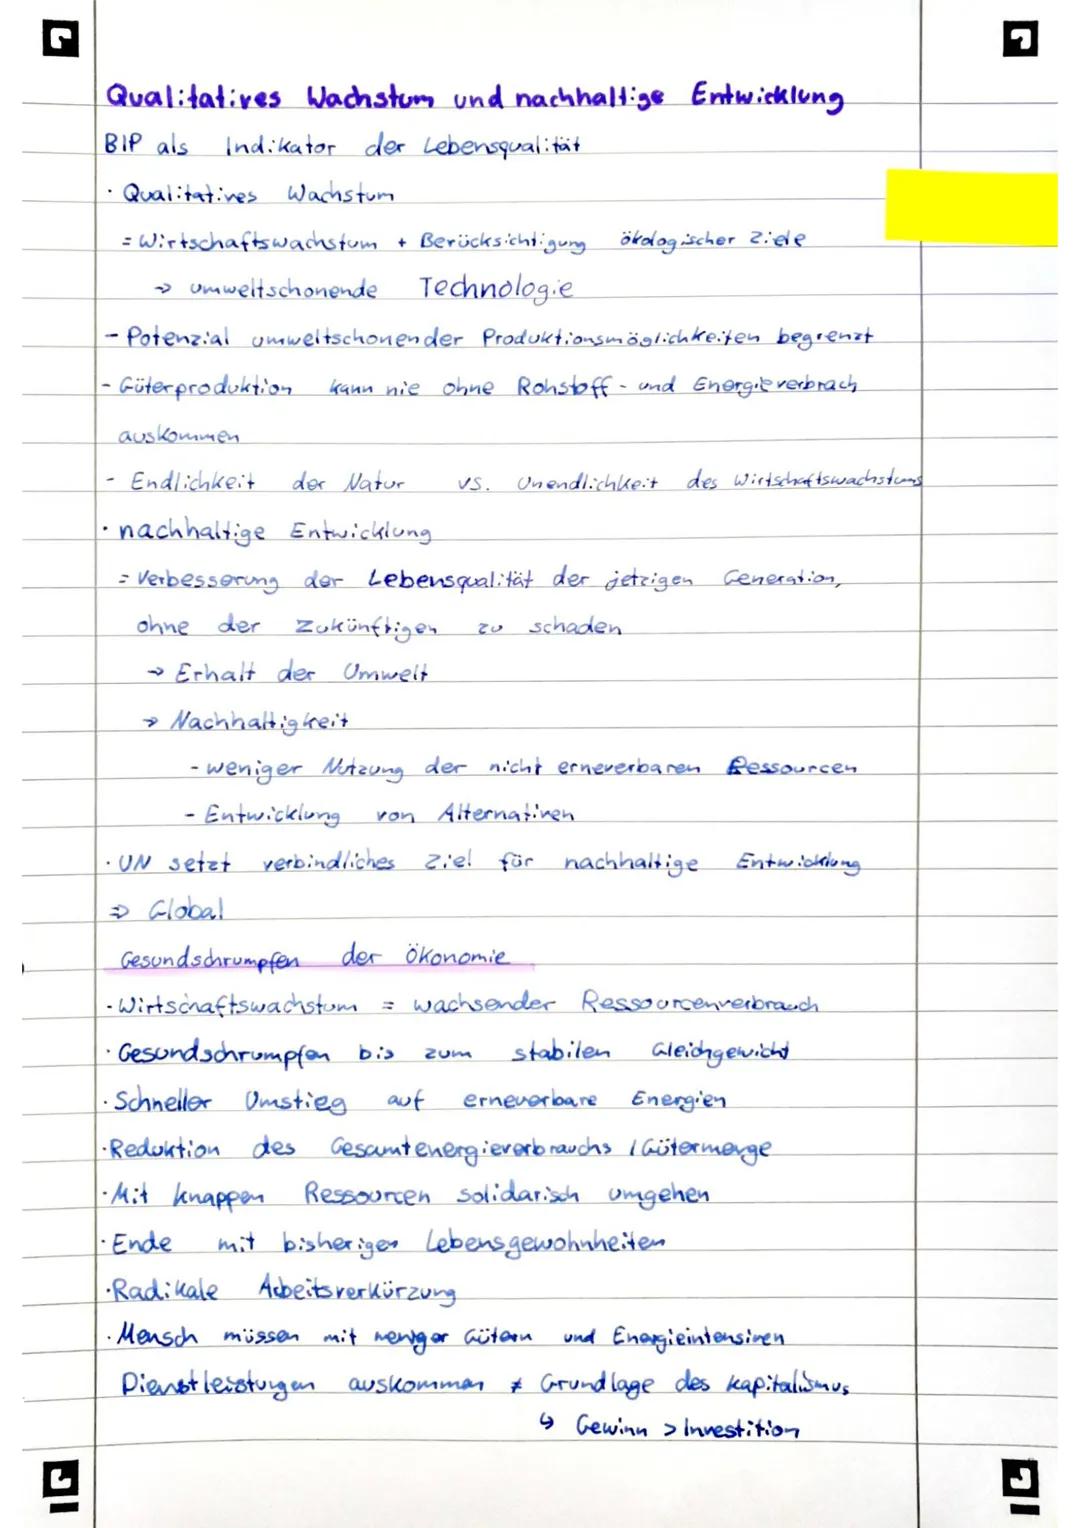 Qualitatives Wachstum und nachhaltige Entwicklung
BIP als Indikator der Lebensqualität
· Qualitatives Wachstum
= Wirtschaftswachstum + Berücksichtigung ökologischer Ziele
→ umweltschonende Technologie
- Potenzial umweltschonender Produktionsmöglichkeiten begrenzt
- Güterproduktion kann nie ohne Rohstoff- und Energieverbrach
auskommen
- Endlichkeit der Natur vs. Unendlichkeit des Wirtschaftswachstums
· nachhaltige Entwicklung
= Verbesserung der Lebensqualität der jetzigen Generation,
ohne der Zukünftigen zu schaden
→ Erhalt der Umwelt
→ Nachhaltigkeit
- weniger Nutzung der nicht erneuerbaren Ressourcen
- Entwicklung von Alternativen
· UN setzt verbindliches Ziel für nachhaltige Entwicklung
⇒ Global
Gesundschrumpfen der Ökonomie
· Wirtschaftswachstum = wachsender Ressourcenverbrauch
· Gesundschrumpfen bis zum stabilen Gleichgewicht
· Schneller Umstieg auf erneuerbare Energien
· Reduktion des Gesamtenergieverbrauchs / Gütermenge
· Mit knappen Ressourcen solidarisch umgehen
· Ende mit bisherigen Lebensgewohnheiten
· Radikale Arbeitsverkürzung
· Mensch müssen mit weniger Gütern und Energieintensiven
Dienstleistungen auskommen ≠ Grundlage des Kapitalismus
↳ Gewinn > Investition